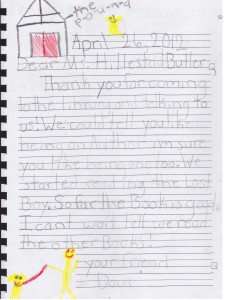 the
pound
April 26, 2012
Dear Mr. Hillestad Butler,
Thank you for coming
to the library and talking to
us. We could tell you like
being an Author. im sure
you like being one too. We
started reading the Lost
Boy. So far the Book is good.
I can't wait tell we read
the other Books!
your friend